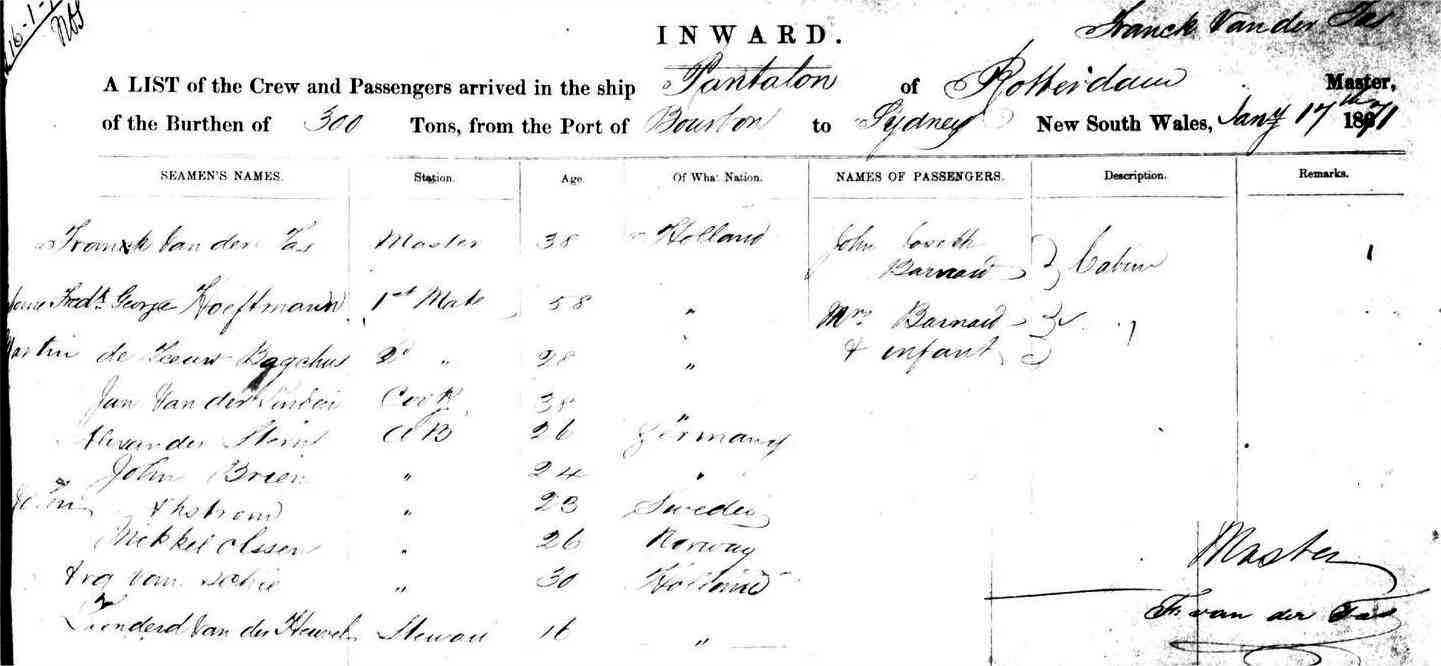 16-1-
INWARD.
Franck Van der Tas
A LIST of the Crew and Passengers arrived in the ship Pantalon of Rotterdam Master,
of the Burthen of 300 Tons, from the Port of Bourbon to Sydney New South Wales, Jany 17th 1871
SEAMEN'S NAMES. Station. Age. Of What Nation. NAMES OF PASSENGERS. Description. Remarks.
Franck Van der Tas Master 38 Holland John Joseph
Barnard Cabin
Fredk George Hoeftmann 1st Mate 58 " Mrs Barnard "
Martin de Leeuw 2d " 28 " & infant
Jan Van der Cook 38 "
Alexander Stern AB 26 Germany
John Breen " 24 "
Ahstrom " 23 Sweden
Mikkel Olssen " 26 Norway
Master
Ary Van Schie " 30 Holland
F. van der Tas
Leenderd Van der Heuvel Steward 16 "